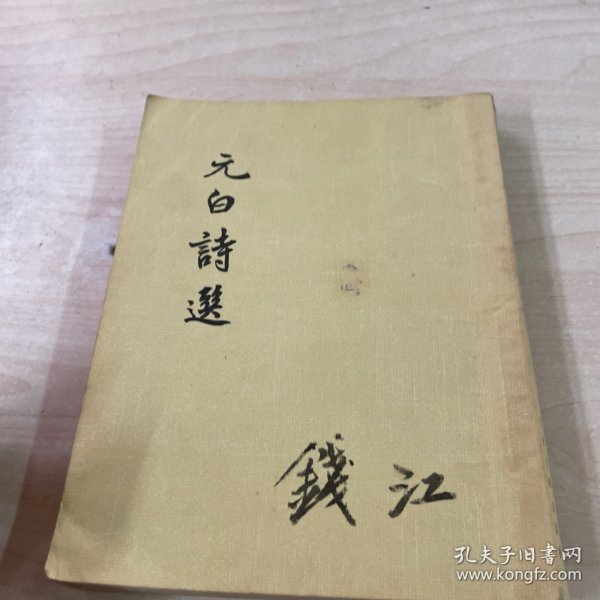 元白詩選
錢江
孔夫子旧书网
www.kongfz.com